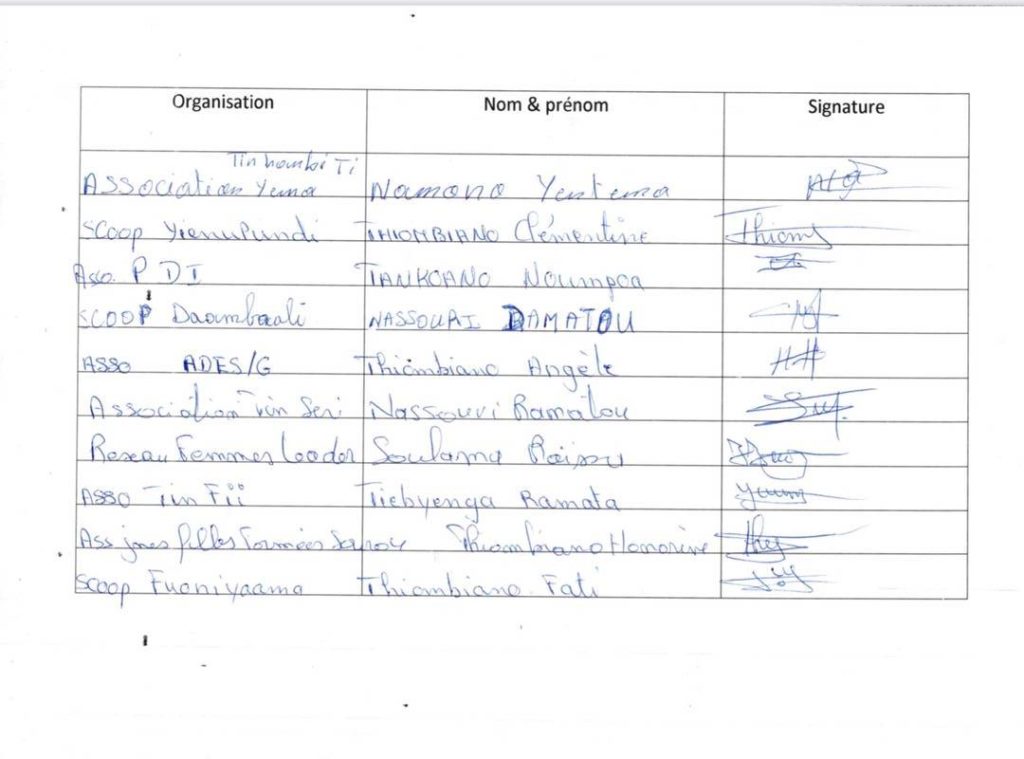 Organisation Nom & prénom Signature
Tin hambi Ti
Association Yema Namono Yentema
SCOOP Yienupundi THIOMBIANO Clémentine Thiom
Asso. P D I TANKOANO Noumpoa
SCOOP Daambaali NASSOURI DAMATOU
ASSO ADES/G Thiombiano Angèle
Association Tin Seri Nassouri Ramatou
Reseau Femmes Leader Soulama
ASSO Tin Fii Tiebyenga Ramata
Ass jones filles Formées Thiombiano Honorine
SCOOP Fuoniyaama Thiombiano Fati